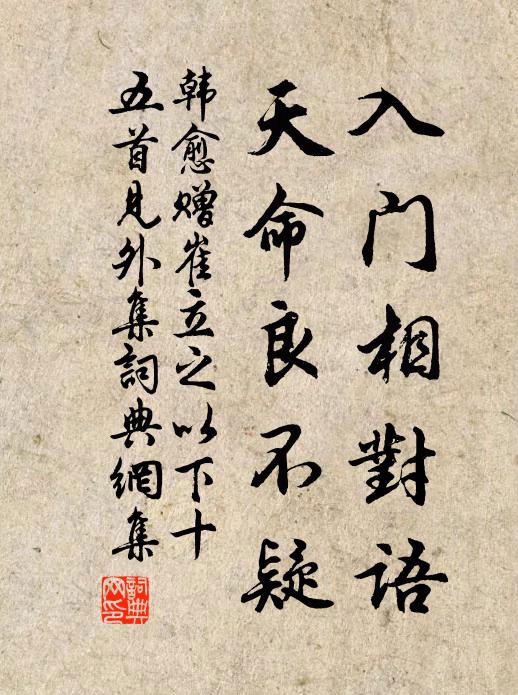 入门相對語
天命良不疑
韩愈贈崔立之以下十
五首见外集詞典網集